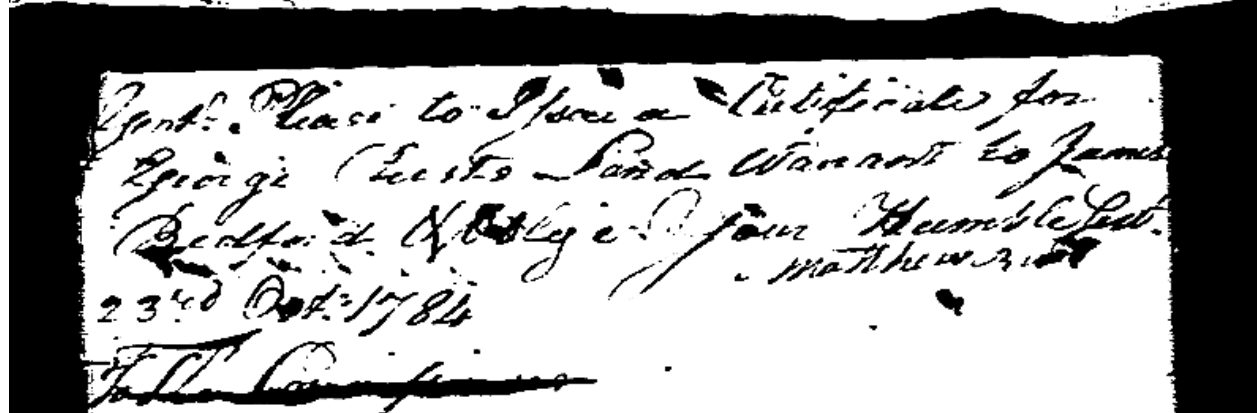 Gentn. Please to Issue a Certificate for
George Custs Land Warrant to James
Bedford & Oblige Your Humble Servt.
Matthew
23rd Octr. 1784
To the Commissioners